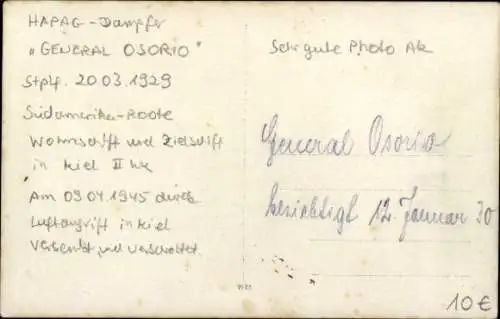 HAPAG-Dampfer
"GENERAL OSORIO"
Stplf. 20 03. 1929
Südamerika-Route
Wohnschiff und Zielschiff
in Kiel II WK
Am 09 04 1945 durch
Luftangriff in Kiel
versenkt und verschrottet.
Sehr gute Photo Ak
General Osorio
besichtigt 12. Januar 30
10€